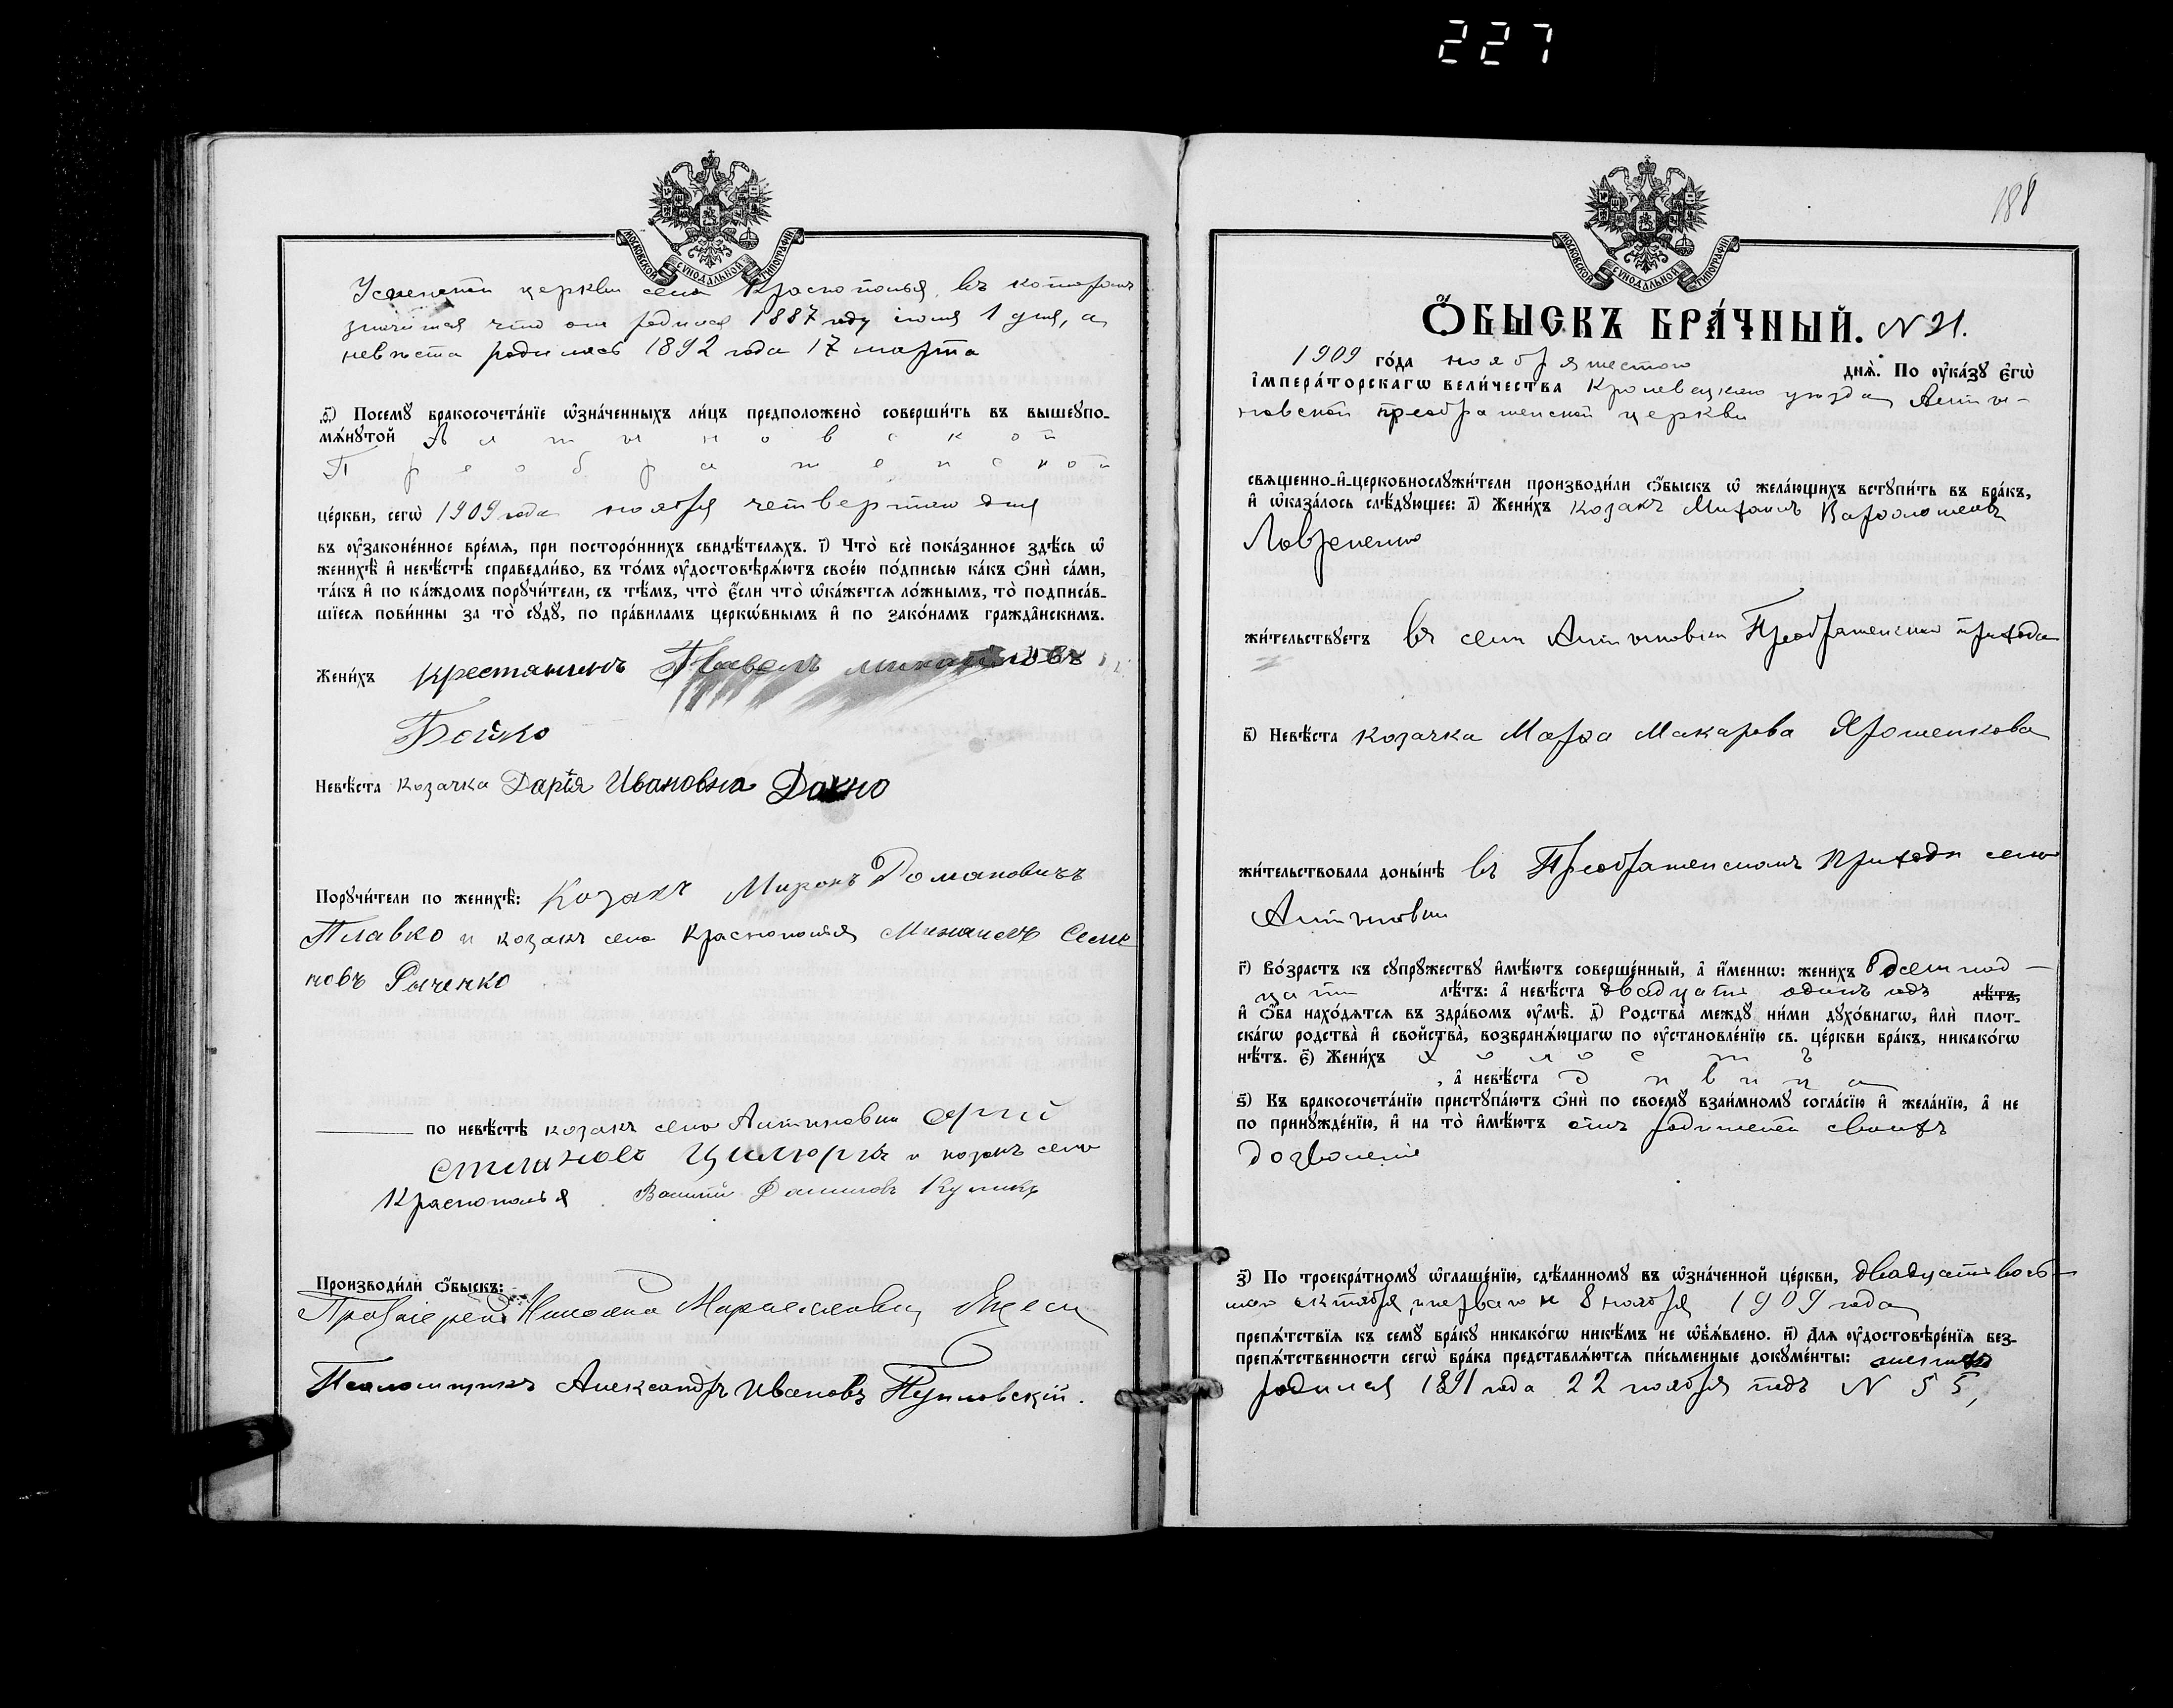 227
МОСКОВСКОЙ СѴНОДАЛЬНОЙ ТИПОГРАФІИ
Успенской церкви села Краснополья, въ которомъ
значится что онъ родился 1887 году іюня 1 дня, а
невѣста родилась 1892 года 17 марта
д҃і) Посемꙋ̀ бракосочета́нїе ѡ҆зна́ченныхъ ли́цъ предположено̀ соверши́ть въ вышеꙋпо-
мѧ́нꙋтой Алтыновской
Преображенской
це́ркви, сегѡ̀ 1909 года ноября четвертаго дня
въ ᲂу҆законе́нное вре́мѧ, при посторо́ннихъ свидѣ́телѧхъ. і҃) Что̀ всѐ пока́занное здѣ́сь ѡ҆
женихѣ̀ и҆ невѣ́стѣ справедли́во, въ то́мъ ᲂу҆достовѣрѧ́ютъ свое́ю по́дписью ка́къ ѻ҆нѝ са́ми,
та́къ и҆ по ка́ждомъ порꙋчи́тели, съ тѣ́мъ, что̀ є҆́сли что̀ ѡ҆ка́жетсѧ ло́жнымъ, то̀ подписа́в-
шїесѧ пови́нны за то̀ сꙋдꙋ̀, по пра́виламъ церкѡ́внымъ и҆ по зако́намъ гражда́нскимъ.
Жени́хъ крестьянинъ Павелъ Михайловъ
Бойко
Невѣ́ста козачка Дарія Ивановна Дахно
Порꙋчи́тели по женихѣ̀: Козакъ Миронъ Романовичъ
Плавко и козакъ села Краснополья Михаилъ Семе
новъ Рыченко
по невѣ́стѣ козакъ села Алтыновки Сергій
Цилюрикъ и козакъ села
Краснополья Василій Даниловъ Куликъ
Производи́ли ѻ҆́быскъ:
Протоіерей Николай
Псаломщикъ Александръ Ивановъ
188
МОСКОВСКОЙ СѴНОДАЛЬНОЙ ТИПОГРАФІИ
Ѻ҆́БЫСКЪ БРА́ЧНЫЙ. N 21.
1909 го́да ноября шестого днѧ̀. По ᲂу҆ка́зꙋ є҆гѡ̀
і҆мпера́торскагѡ вели́чества Кролевецкаго уѣзда Алты-
новской Преображенской церкви
свѧще́нно-и҆-церковнослꙋжи́тели производи́ли ѻ҆́быскъ ѡ҆ жела́ющихъ встꙋпи́ть въ бра́къ,
и҆ ѡ҆каза́лось слѣ́дꙋющее: а҃) Жени́хъ козакъ Михаилъ Варѳоломеевъ
Лавренко
жи́тельствꙋетъ въ селѣ Алтыновкѣ Преображенскаго прихода
в҃) Невѣ́ста козачка Марѳа Макарова Ярошенкова
жи́тельствовала доны́нѣ въ Преображенскомъ приходѣ села
Алтыновки
г҃) Во́зрастъ къ сꙋпрꙋ́жествꙋ и҆мѣ́ютъ соверше́нный, а҆ и҆́меннѡ: жени́хъ восемнад-
цати лѣ́тъ: а҆ невѣ́ста двадцати одинъ годъ лѣ́тъ,
и҆ ѻ҆́ба нахо́дѧтсѧ въ здра́вомъ ᲂу҆мѣ̀. д҃) Родства̀ междꙋ̀ ни́ми дꙋхо́внагѡ, и҆лѝ плот-
ска́гѡ родства̀ и҆ сво́йства̀, возбранѧ́ющагѡ по ᲂу҆становле́нїю св. це́ркви бра́къ, никако́гѡ
нѣ́тъ. є҃) Жени́хъ холостъ
, а҆ невѣ́ста дѣвица
ѕ҃) Къ бракосочета́нїю пристꙋпа́ютъ ѻ҆нѝ по своемꙋ̀ взаи́мномꙋ согла́сїю и҆ жела́нїю, а҆ не
по принꙋжде́нїю, и҆ на то̀ и҆мѣ́ютъ отъ родителей своихъ
дозволеніе
з҃) По троекра́тномꙋ ѡ҆глаше́нїю, сдѣ́ланномꙋ въ ѡ҆зна́ченной це́ркви, двадцать вось-
мого октября, перваго и 8 ноября 1909 года
препѧ́тствїѧ къ семꙋ̀ бра́кꙋ никако́гѡ никѣ́мъ не ѡ҆б̾ѧ́влено. и҃) Длѧ ᲂу҆достовѣре́нїѧ без-
препѧ́тственности сегѡ̀ бра́ка представлѧ́ютсѧ пи́сьменные докꙋме́нты: женихъ
родился 1891 года 22 ноября подъ N 55,